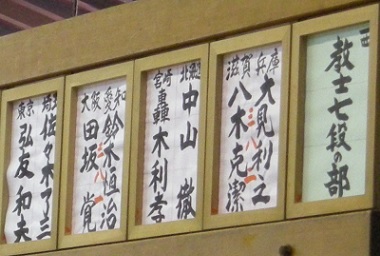 西
教士七段の部
兵庫 大見利工
滋賀 八木克潔
三八一
北海
中山 徹
宮崎 轟木利孝
愛知 鈴木恒治
大阪 田坂 覚
三八一
埼玉 佐々木了三
東京 弘友和夫